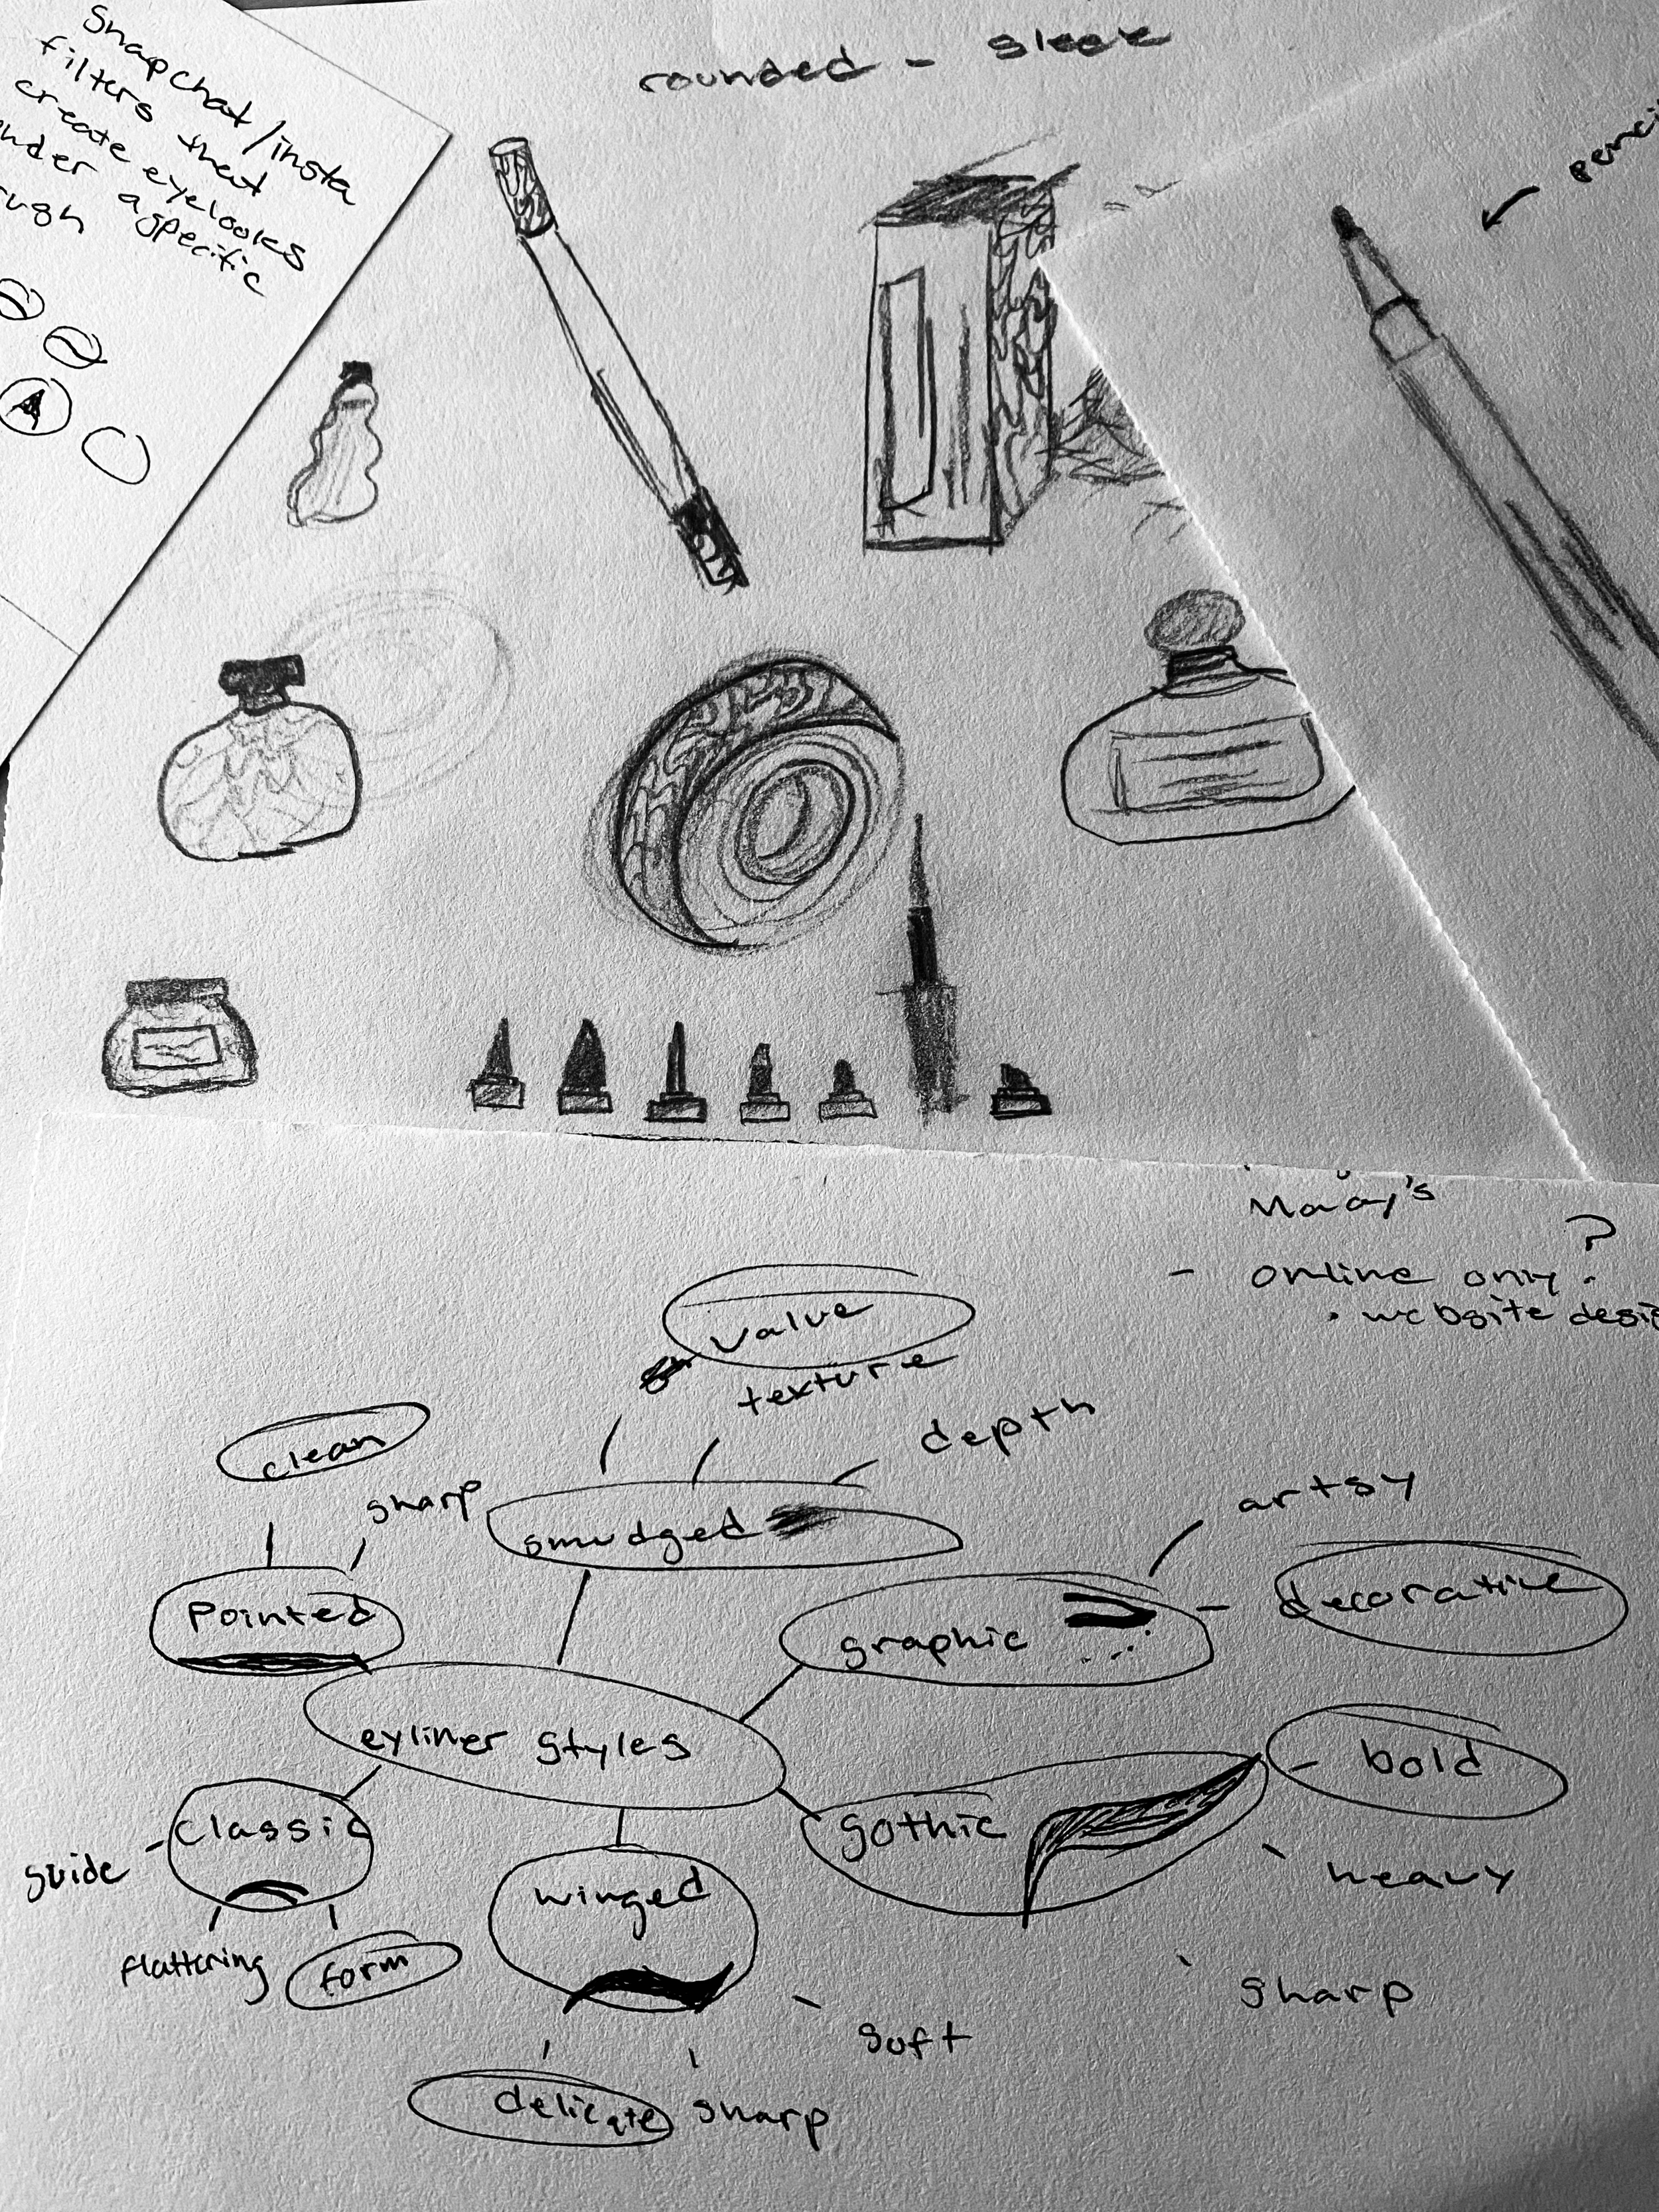 Snapchat/insta
filters that
create eyelooks
under a specific
rough
rounded - sleek
penci
A
Macy's
- online only?
• website desi
value
texture
depth
clean
sharp
smudged
artsy
Pointed
graphic
decorative
eyliner styles
bold
classic
gothic
guide
winged
heavy
flattering
form
sharp
soft
delicate
sharp